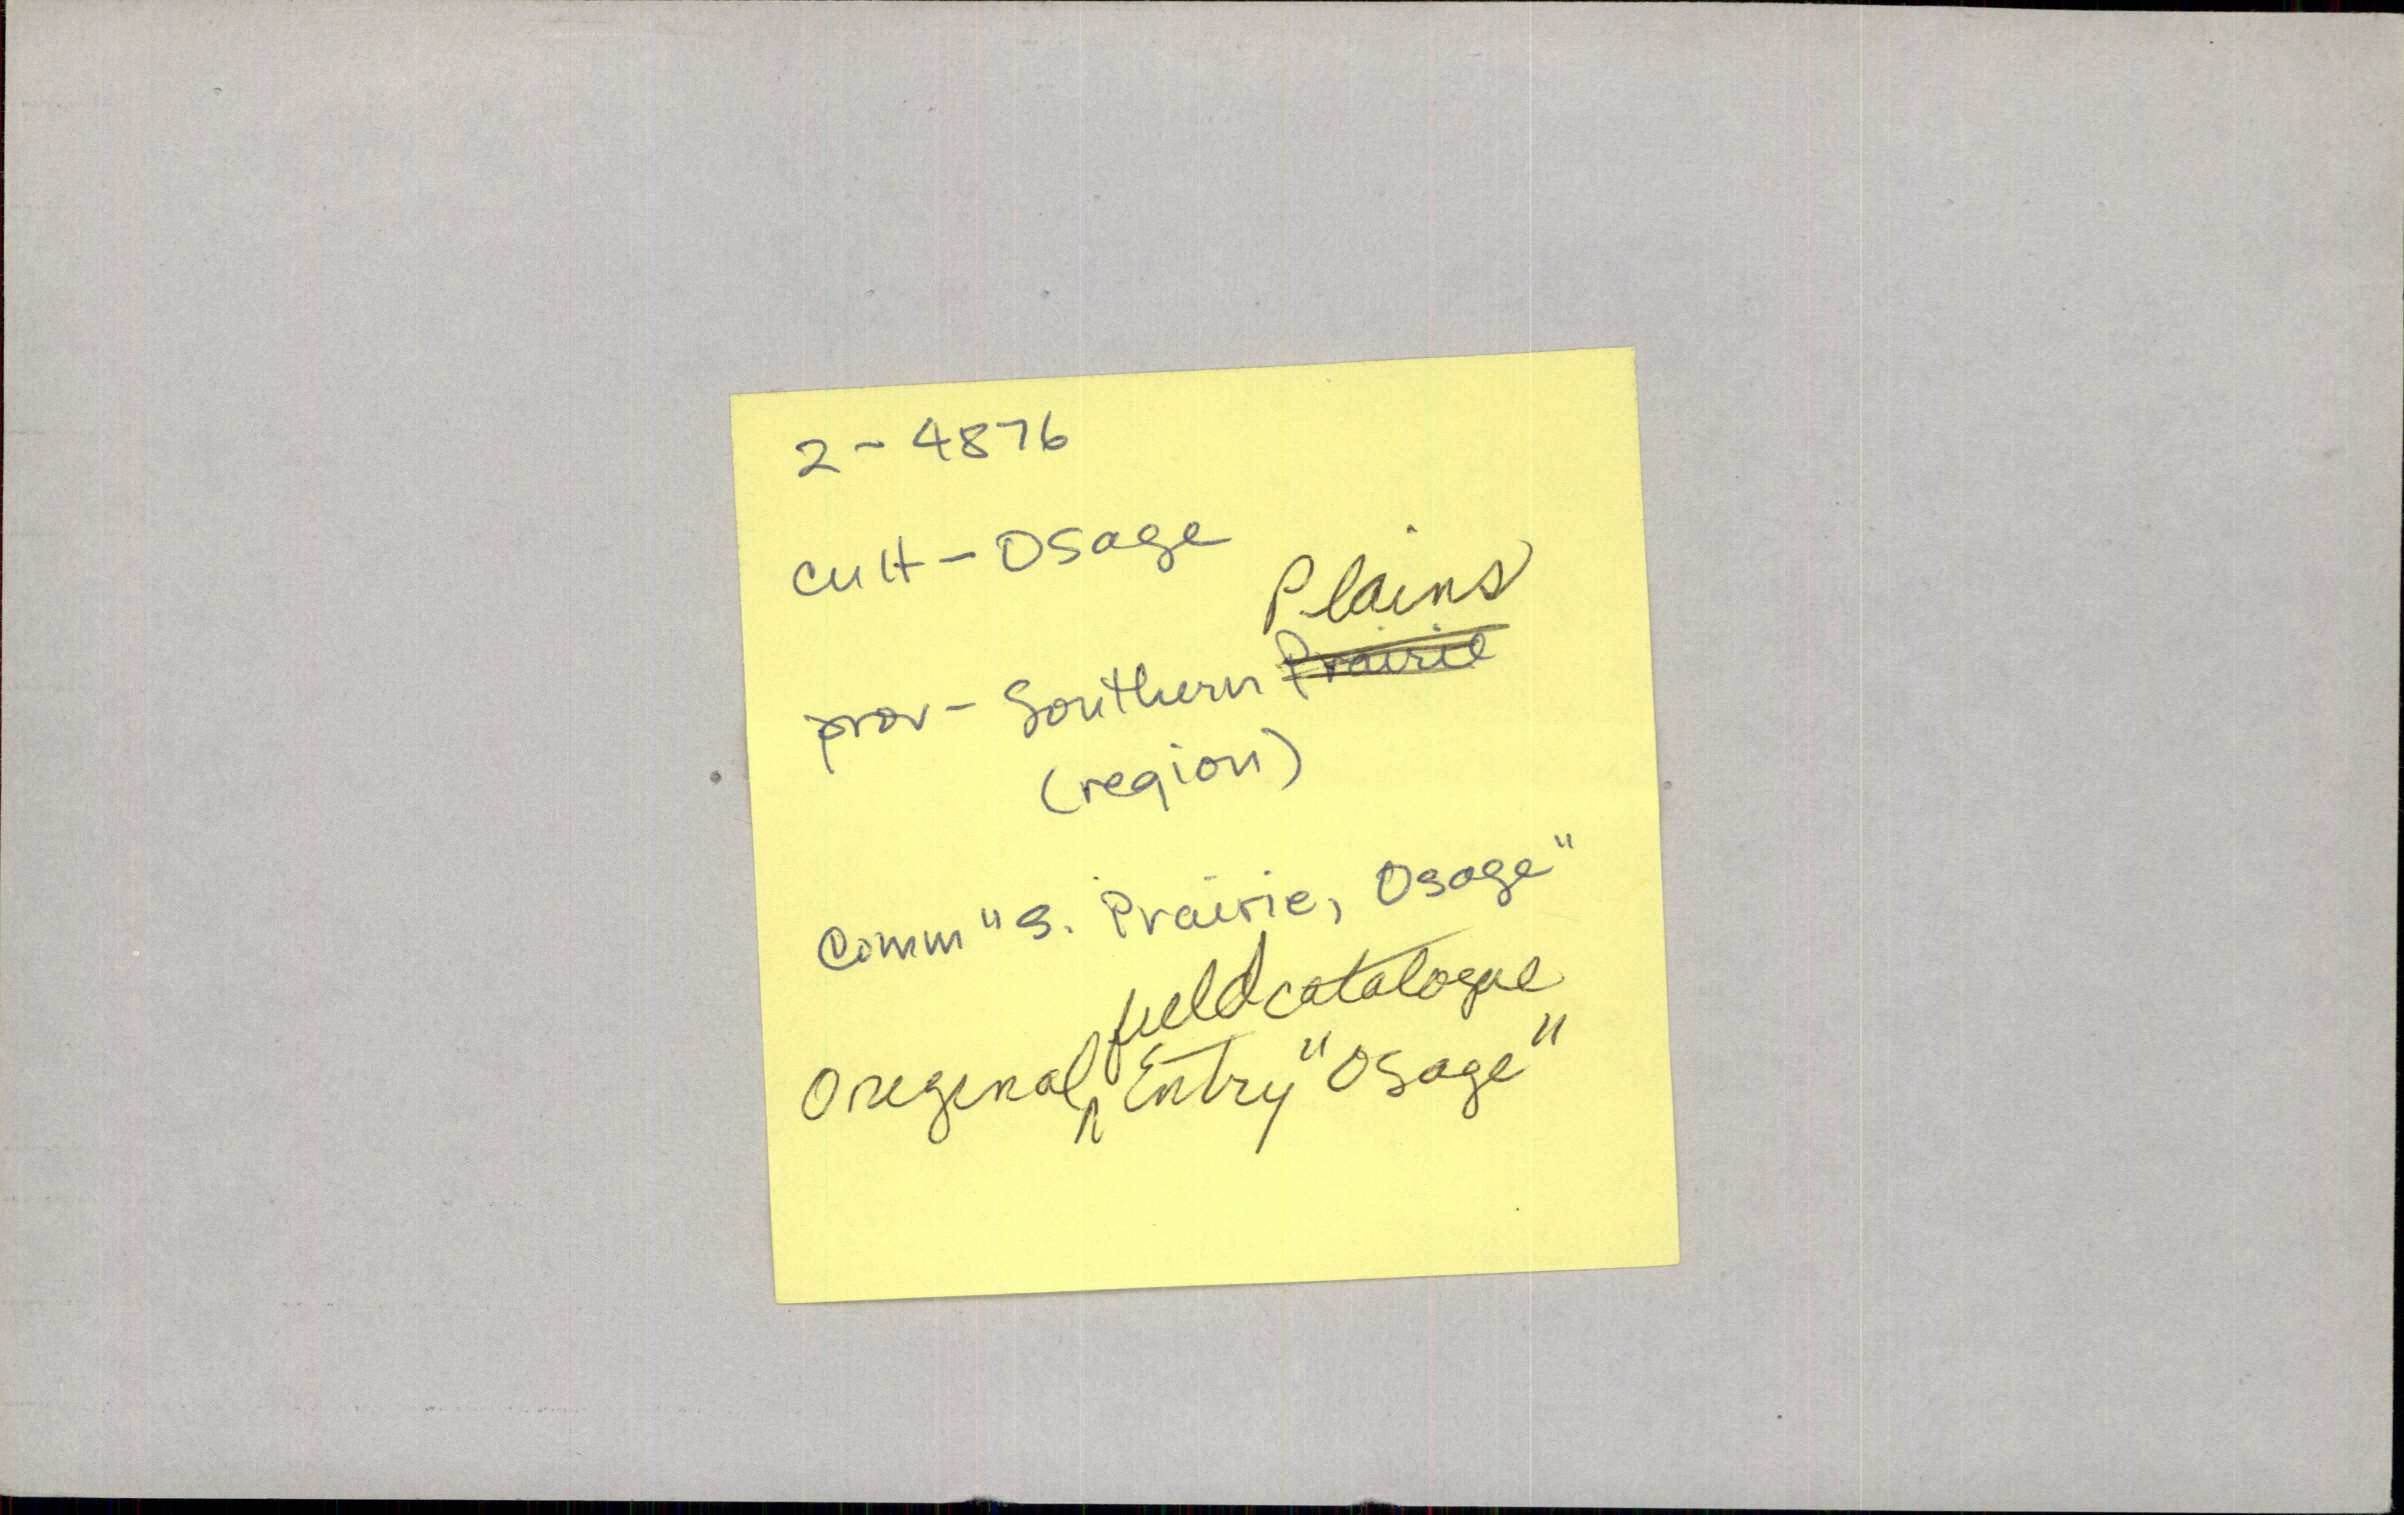 2-4876
Cult - Osage
Plains
prov - Southern Prairie
(region)
Comm "S. Prairie, Osage"
field catalogue
Original ^ Entry "Osage"